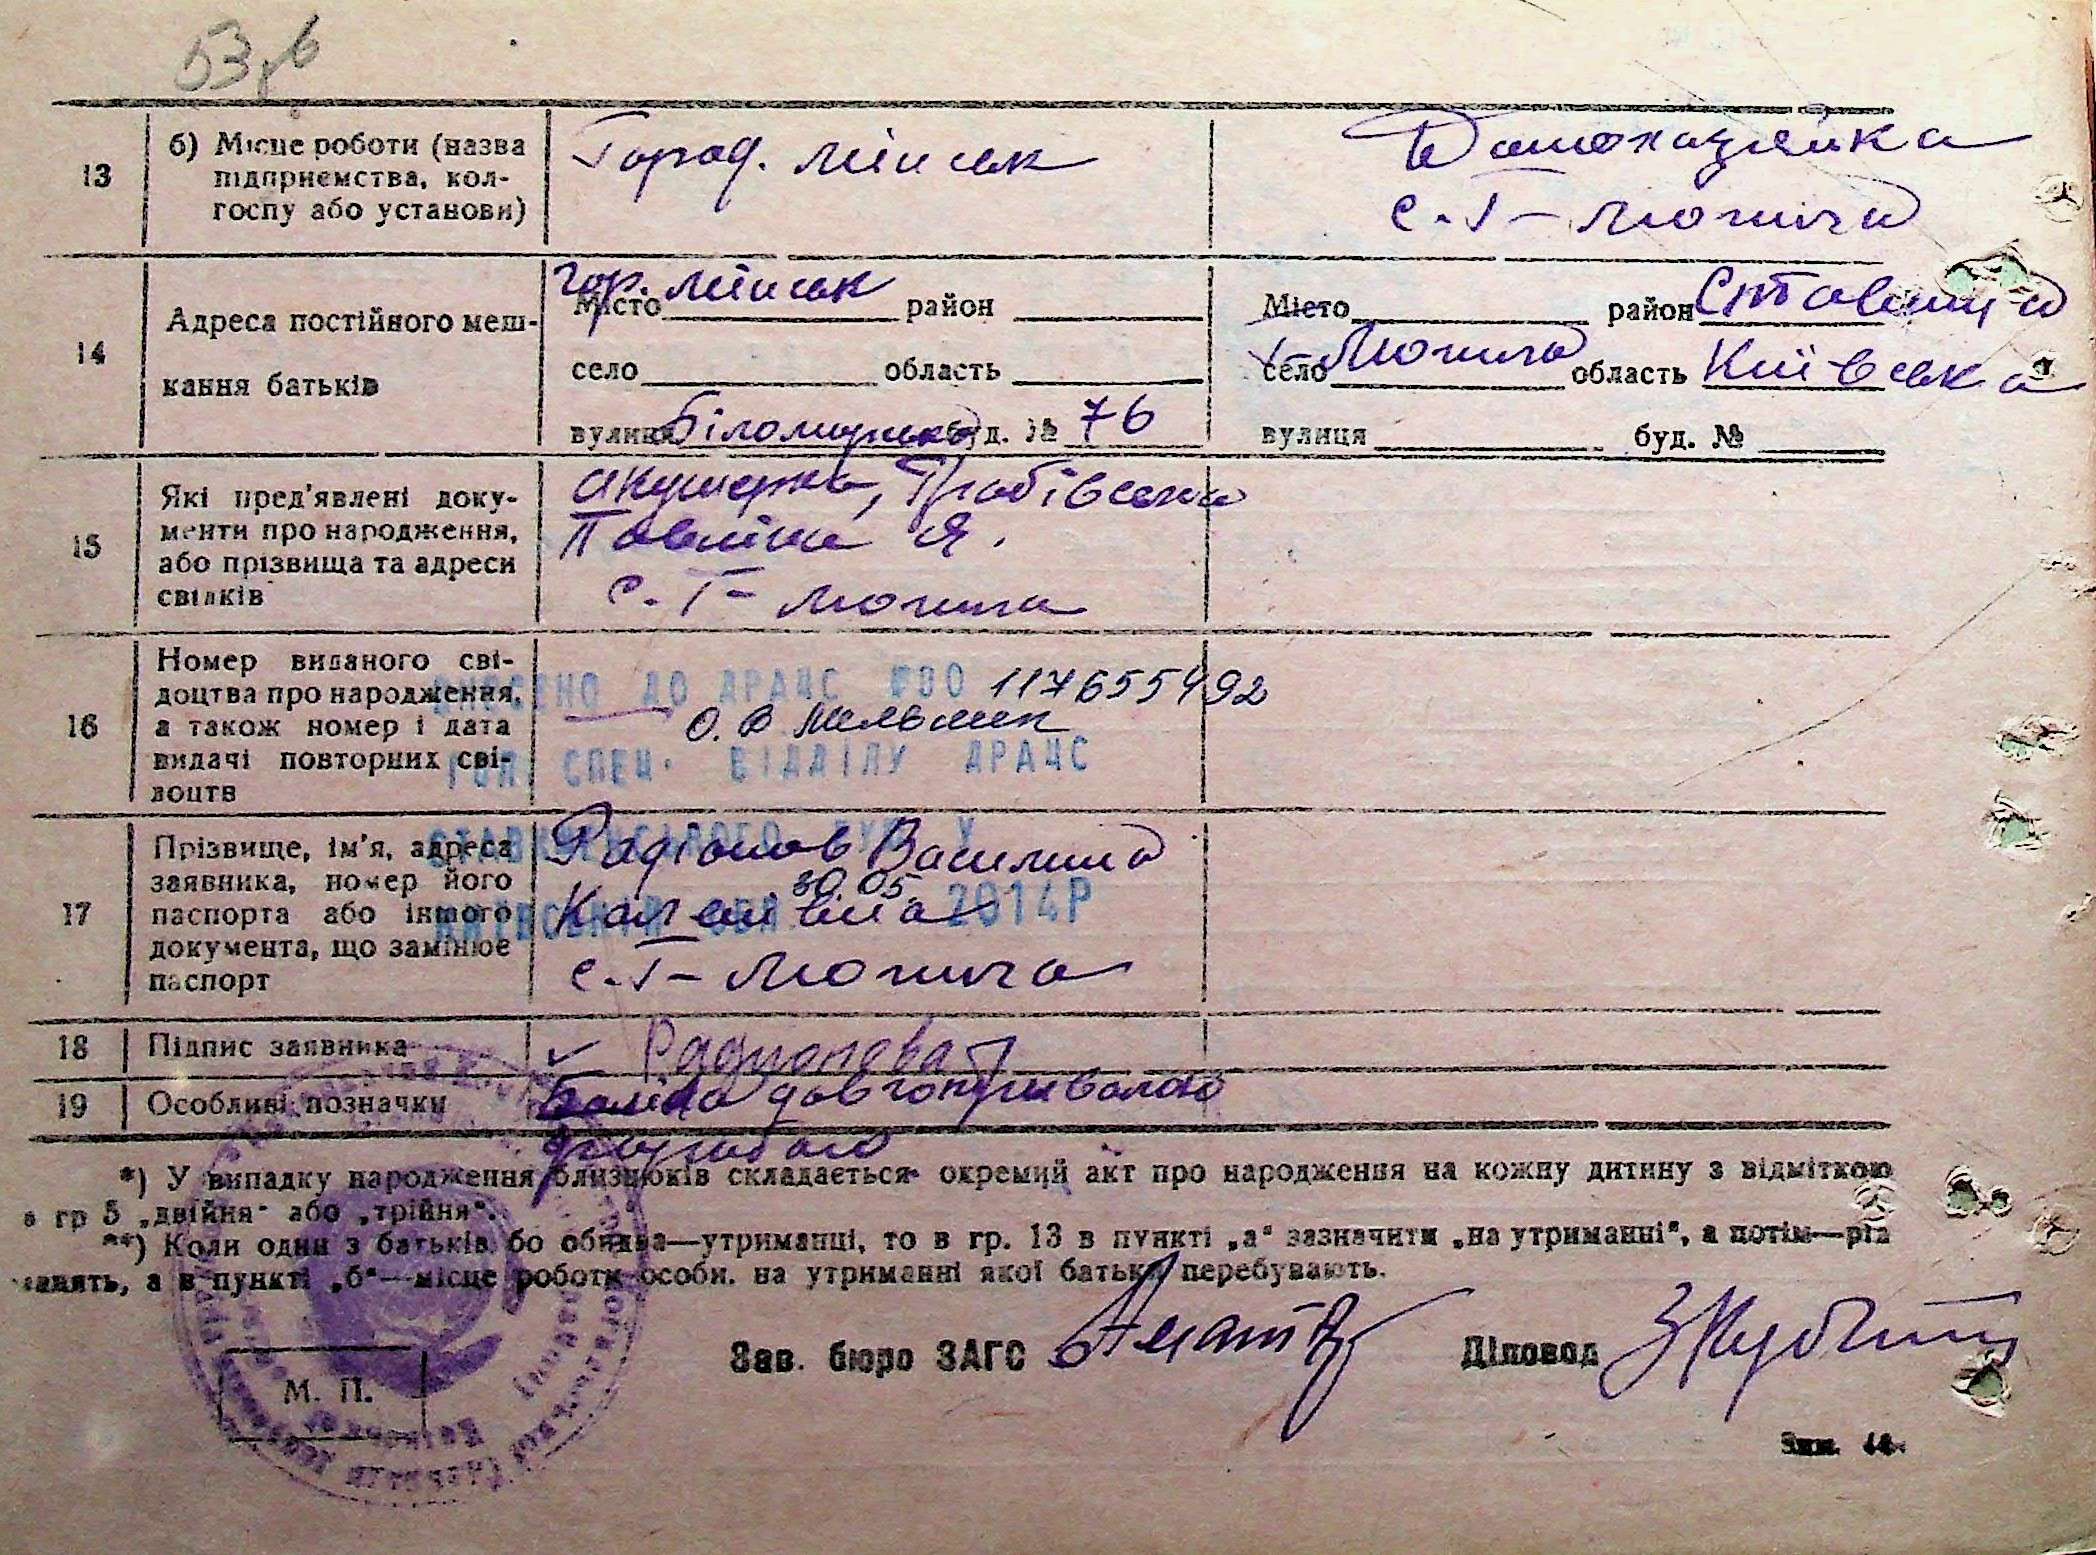 53
13
б) Місце роботи (назва
підприємства, кол-
госпу або установи)
Город. Мінськ
Домохазяйка
с. Г-Могила
14
Адреса постійного меш-
кання батьків
гор. Мінськ
Місто район
село область
вулиця Біломорська буд. № 76
Місто район Ставища
село Могила область Київська
вулиця буд. №
15
Які пред'явлені доку-
менти про народження,
або прізвища та адреси
свідків
акушерка,
Павліна Я.
с. Г-Могила
16
Номер виданого сві-
доцтва про народження,
а також номер і дата
видачі повторних сві-
доцтв
ВНЕСЕНО ДО ДРАЦС 117655492
О. В Мельник
ГОЛ. СПЕЦ. ВІДДІЛУ ДРАЦС
17
Прізвище, ім'я, адреса
заявника, номер його
паспорта або іншого
документа, що замінює
паспорт
СТАВИЩЕНСЬКОГО РУЮ У
Радіонов Василина
30.05.
КИЇВСЬКІЙ ОБЛ. 2014Р
с. Г-Могила
18
Підпис заявника
Радионова
19
Особливі позначки
*) У випадку народження близнюків складається окремий акт про народження на кожну дитину з відміткою
в гр 5 „двійня" або „трійня".
**) Коли один з батьків або обидва—утриманці, то в гр. 13 в пункті „а" зазначити „на утриманні", а потім—рід
занять, а в пункті „б"—місце роботи особи, на утриманні якої батьки перебувають.
Зав. бюро ЗАГС
Діловод
М. П.
Зам.